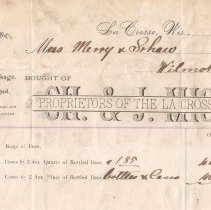 La Crosse, Wis.
Mess. Merry & Schaw
Wilmot
kage. BOUGHT OF
CH. & J. MIC
PROPRIETORS OF THE LA CROSS
Kegs of Beer.
Cases @ 2 doz. Quarts of Bottled Beer, @ 1.85
Cases @ 2 doz. Pints of Bottled Beer, bottles & Case